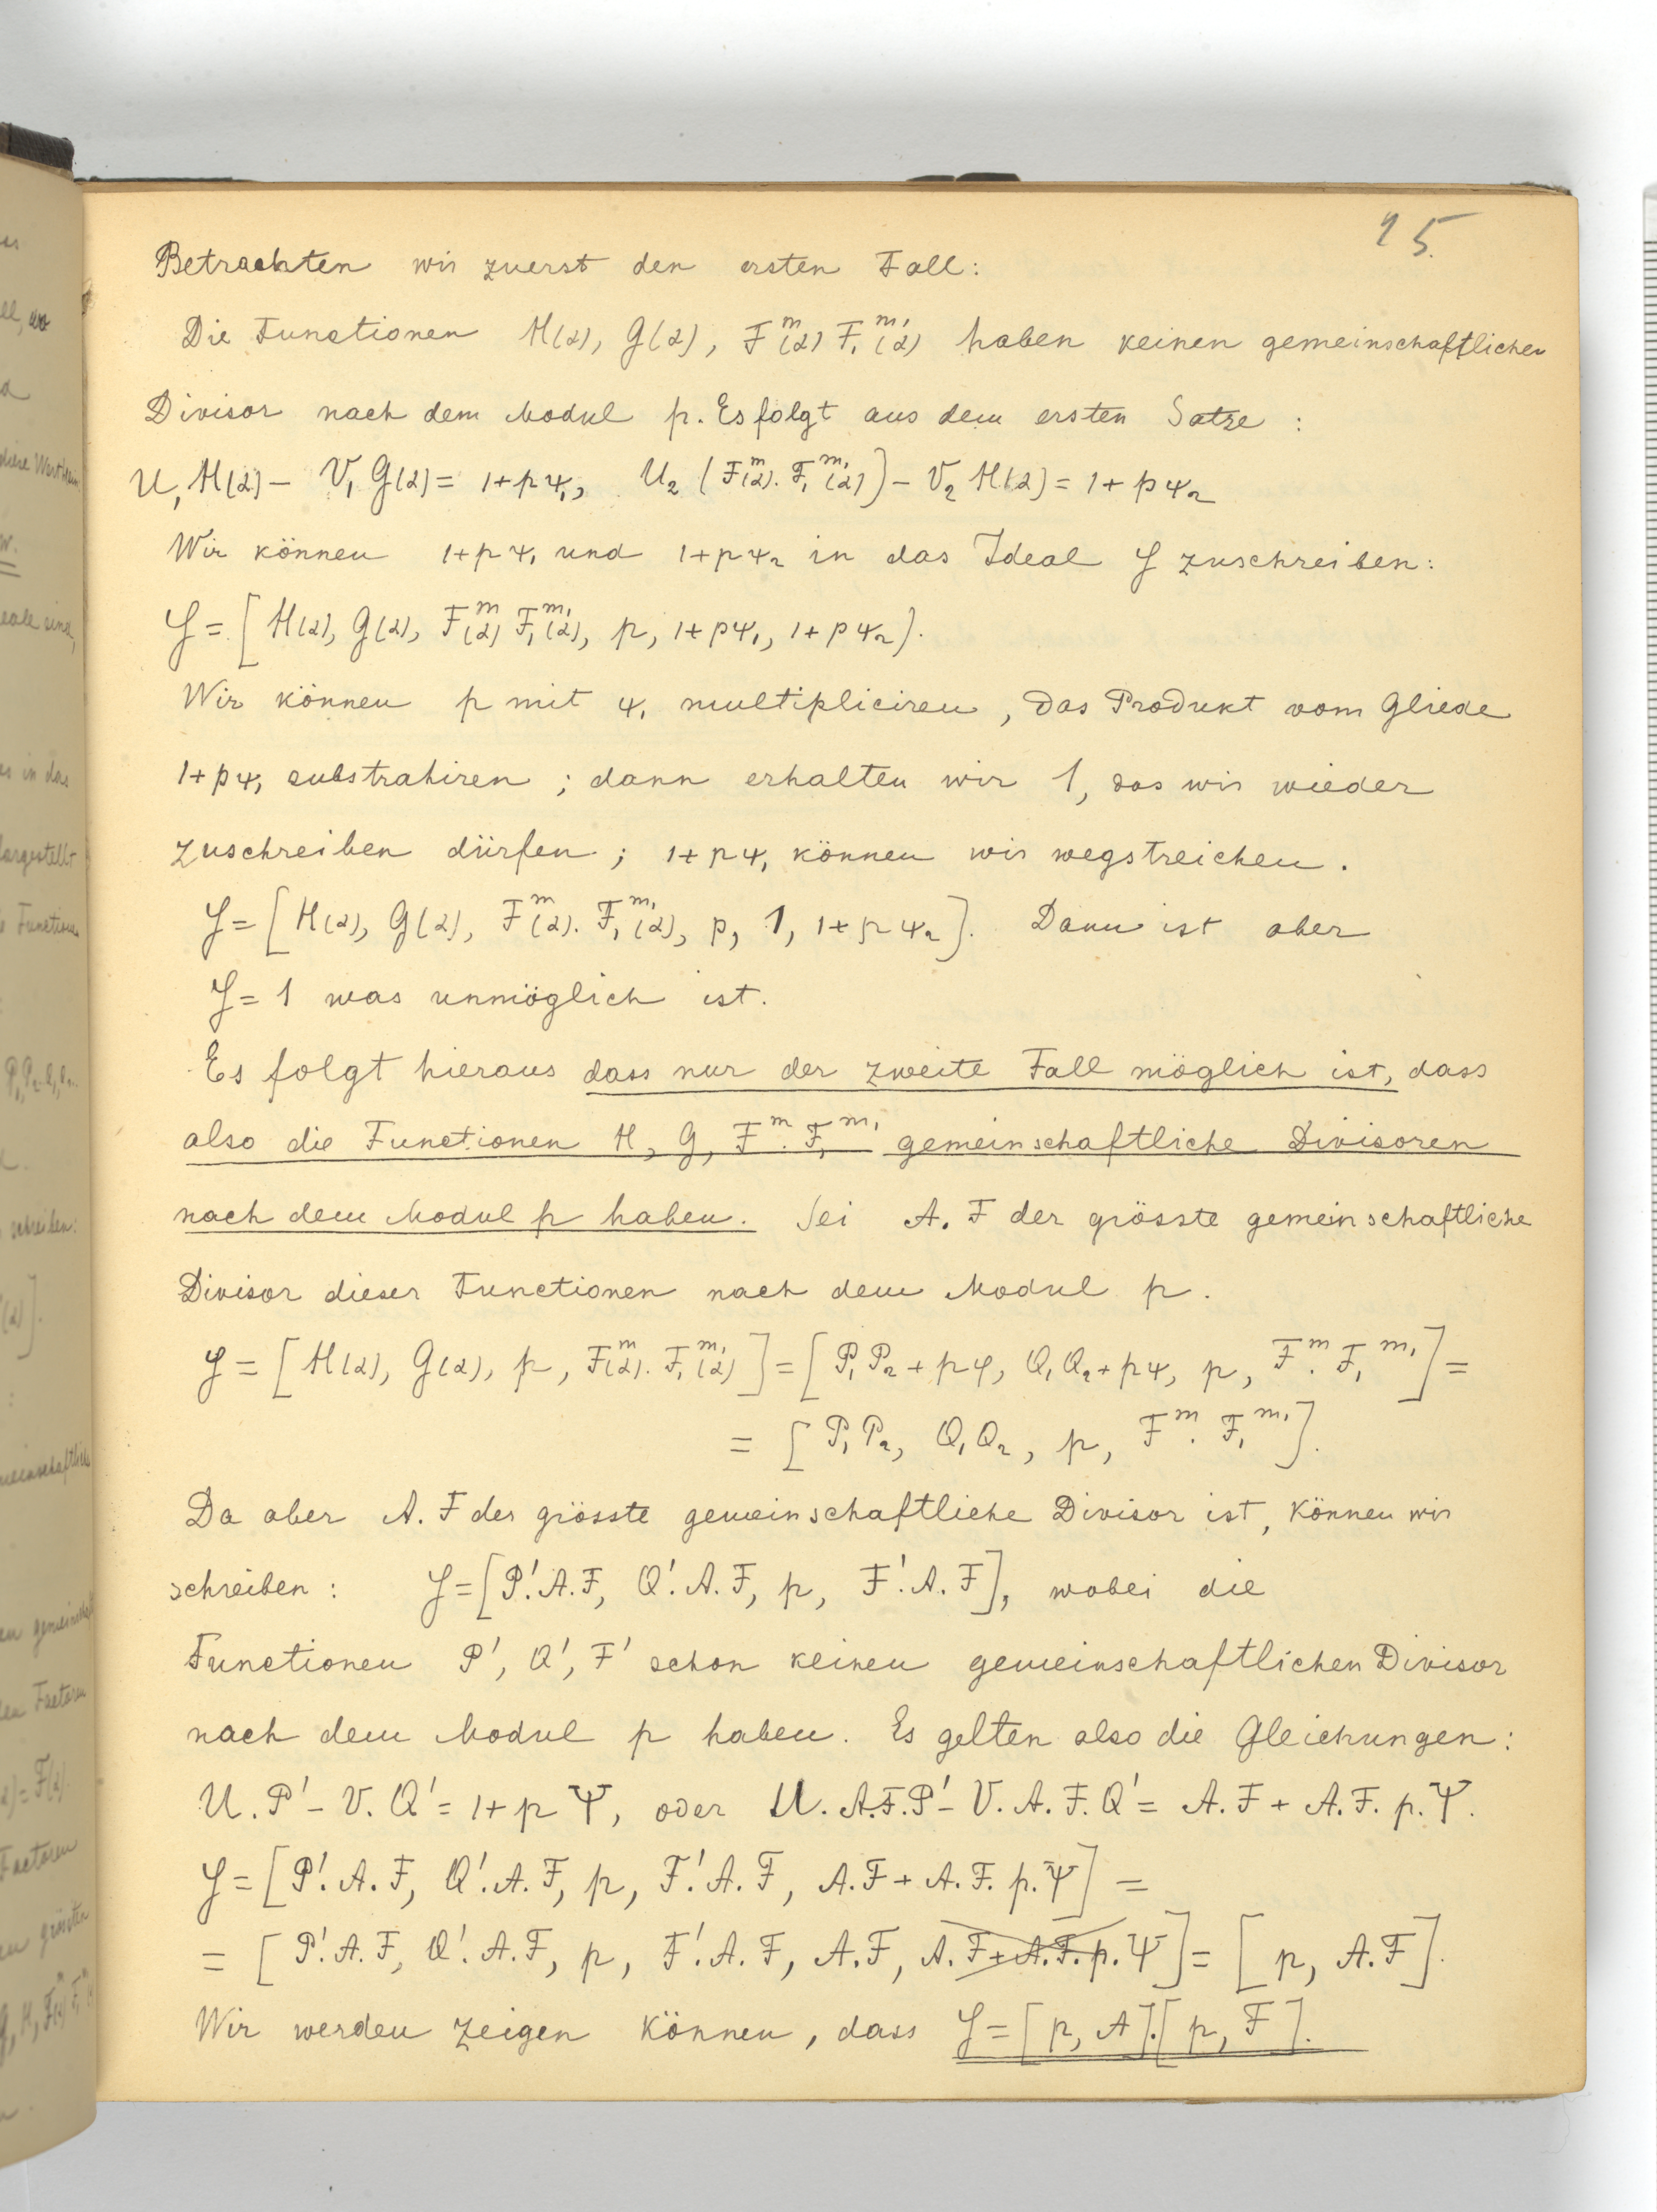 15.
Betrachten wir zuerst den ersten Fall:
Die Functionen H(α), G(α), F^m(α) F₁^m₁(α) haben keinen gemeinschaftlichen
Divisor nach dem Modul p. Es folgt aus dem ersten Satze :
U₁ H(α) – V₁ G(α) = 1+pψ₁, U₂ (F^m(α). F₁^m₁(α)) – V₂ H(α) = 1 + pψ₂
Wir können 1+pψ₁ und 1+pψ₂ in das Ideal J zuschreiben:
J = [H(α), G(α), F^m(α) F₁^m₁(α), p, 1+pψ₁, 1+pψ₂].
Wir können p mit ψ₁ multipliciren, das Produkt vom Gliede
1+pψ₁ substrahiren ; dann erhalten wir 1, das wir wieder
zuschreiben dürfen ; 1+pψ₁ können wir wegstreichen.
J = [H(α), G(α), F^m(α). F₁^m₁(α), p, 1, 1+pψ₂]. Dann ist aber
J = 1 was unmöglich ist.
Es folgt hieraus dass nur der zweite Fall möglich ist, dass
also die Functionen H, G, F^m. F₁^m₁ gemeinschaftliche Divisoren
nach dem Modul p haben. Sei A. F der grösste gemeinschaftliche
Divisor dieser Functionen nach dem Modul p.
J = [H(α), G(α), p, F^m(α). F₁^m₁(α)] = [P₁P₂ + pφ, Q₁Q₂ + pψ, p, F^m. F₁^m₁] =
= [P₁P₂, Q₁Q₂, p, F^m. F₁^m₁].
Da aber A. F der grösste gemeinschaftliche Divisor ist, können wir
schreiben : J = [P'. A. F, Q'. A. F, p, F'. A. F], wobei die
Functionen P', Q', F' schon keinen gemeinschaftlichen Divisor
nach dem Modul p haben. Es gelten also die Gleichungen:
U. P' – V. Q' = 1 + p Ψ, oder U. A. F. P' – V. A. F. Q' = A. F + A. F. p. Ψ.
J = [P'. A. F, Q'. A. F, p, F'. A. F, A. F + A. F. p. Ψ] =
= [P'. A. F, Q'. A. F, p, F'. A. F, A. F, A. F + A. F. p. Ψ] = [p, A. F].
Wir werden zeigen können, dass J = [p, A].[p, F].